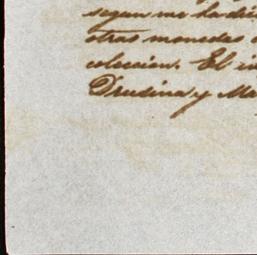 segun me ha di
otras monedas
coleccion. El i
Drusina y Ma